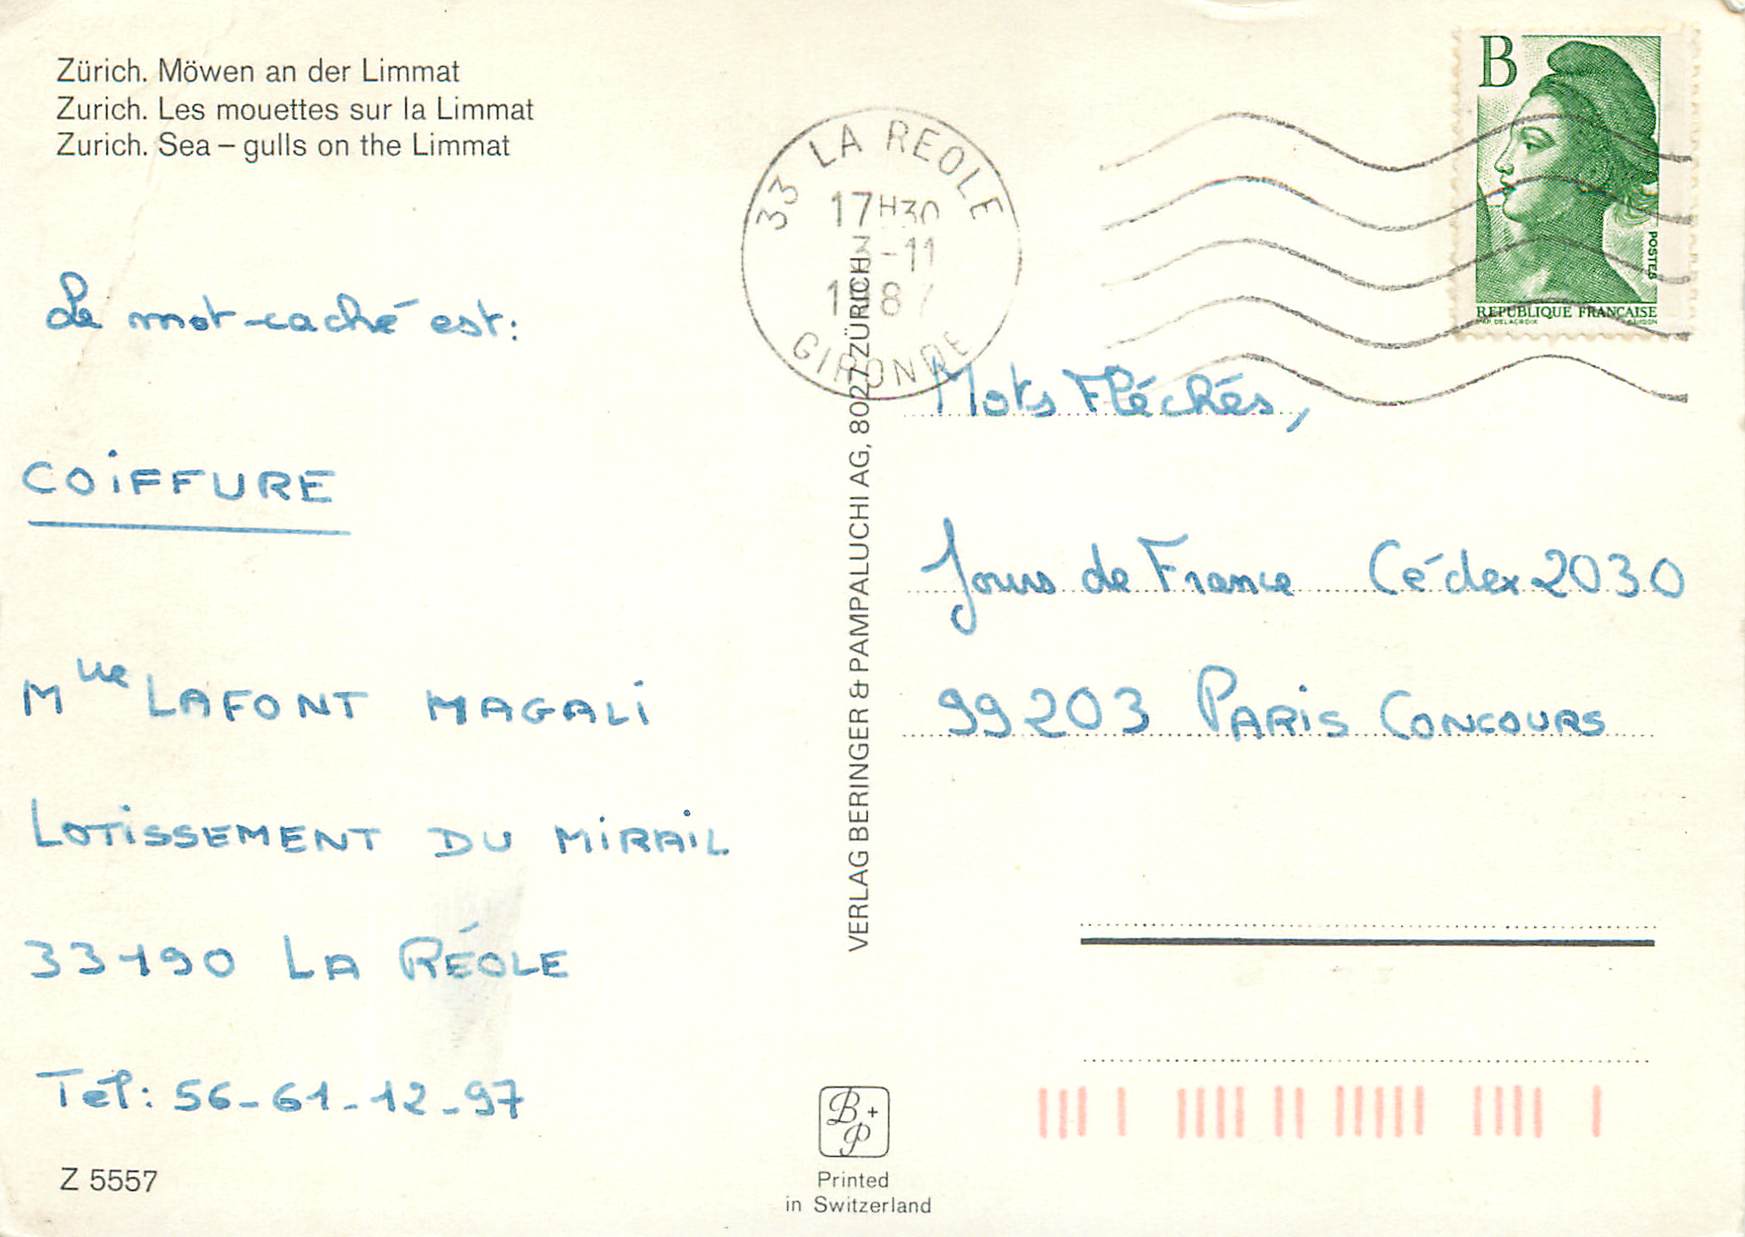 Zürich. Möwen an der Limmat
Zurich. Les mouettes sur la Limmat
Zurich. Sea – gulls on the Limmat
Le mot caché est:
COIFFURE
Mlle LAFONT MAGALI
LOTISSEMENT DU MIRAIL
33190 LA RÉOLE
Tél: 56-61-12-97
Z 5557
33 LA REOLE
17H30
3-11
1987
GIRONDE
VERLAG BERINGER & PAMPALUCHI AG, 8027 ZÜRICH
B+P
Printed
in Switzerland
B
POSTES
REPUBLIQUE FRANÇAISE
DELACROIX
Mots Fléchés,
Jours de France Cédex 2030
99203 PARIS CONCOURS